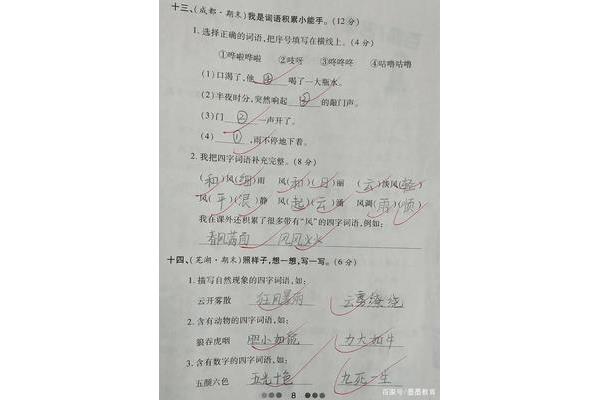 十三、(成都·期末)我是词语积累小能手。(12分)
1. 选择正确的词语,把序号填写在横线上。(4分)
①哗啦哗啦 ②吱呀 ③咚咚咚 ④咕噜咕噜
(1)口渴了,他 ④ 喝了一大瓶水。
(2)半夜时分,突然响起 ③ 的敲门声。
(3)门 ② 一声开了。
(4) ① ,雨不停地下着。
2. 我把四字词语补充完整。(8分)
(和)风(细)雨 风(和)(日)丽 (云)淡风(轻)
风(平)(浪)静 风(起)(云)涌 风调(雨)(顺)
我在课外还积累了很多带有“风”的四字词语,例如:
春风满面 风风火火
十四、(芜湖·期末)照样子,想一想,写一写。(6分)
1. 描写自然现象的四字词语,如:
云开雾散 狂风暴雨 云雾缭绕
2. 含有动物的四字词语,如:
狼吞虎咽 胆小如鼠 力大如牛
3. 含有数字的四字词语,如:
五颜六色 五光十色 九死一生
8
百家号/墨墨教育